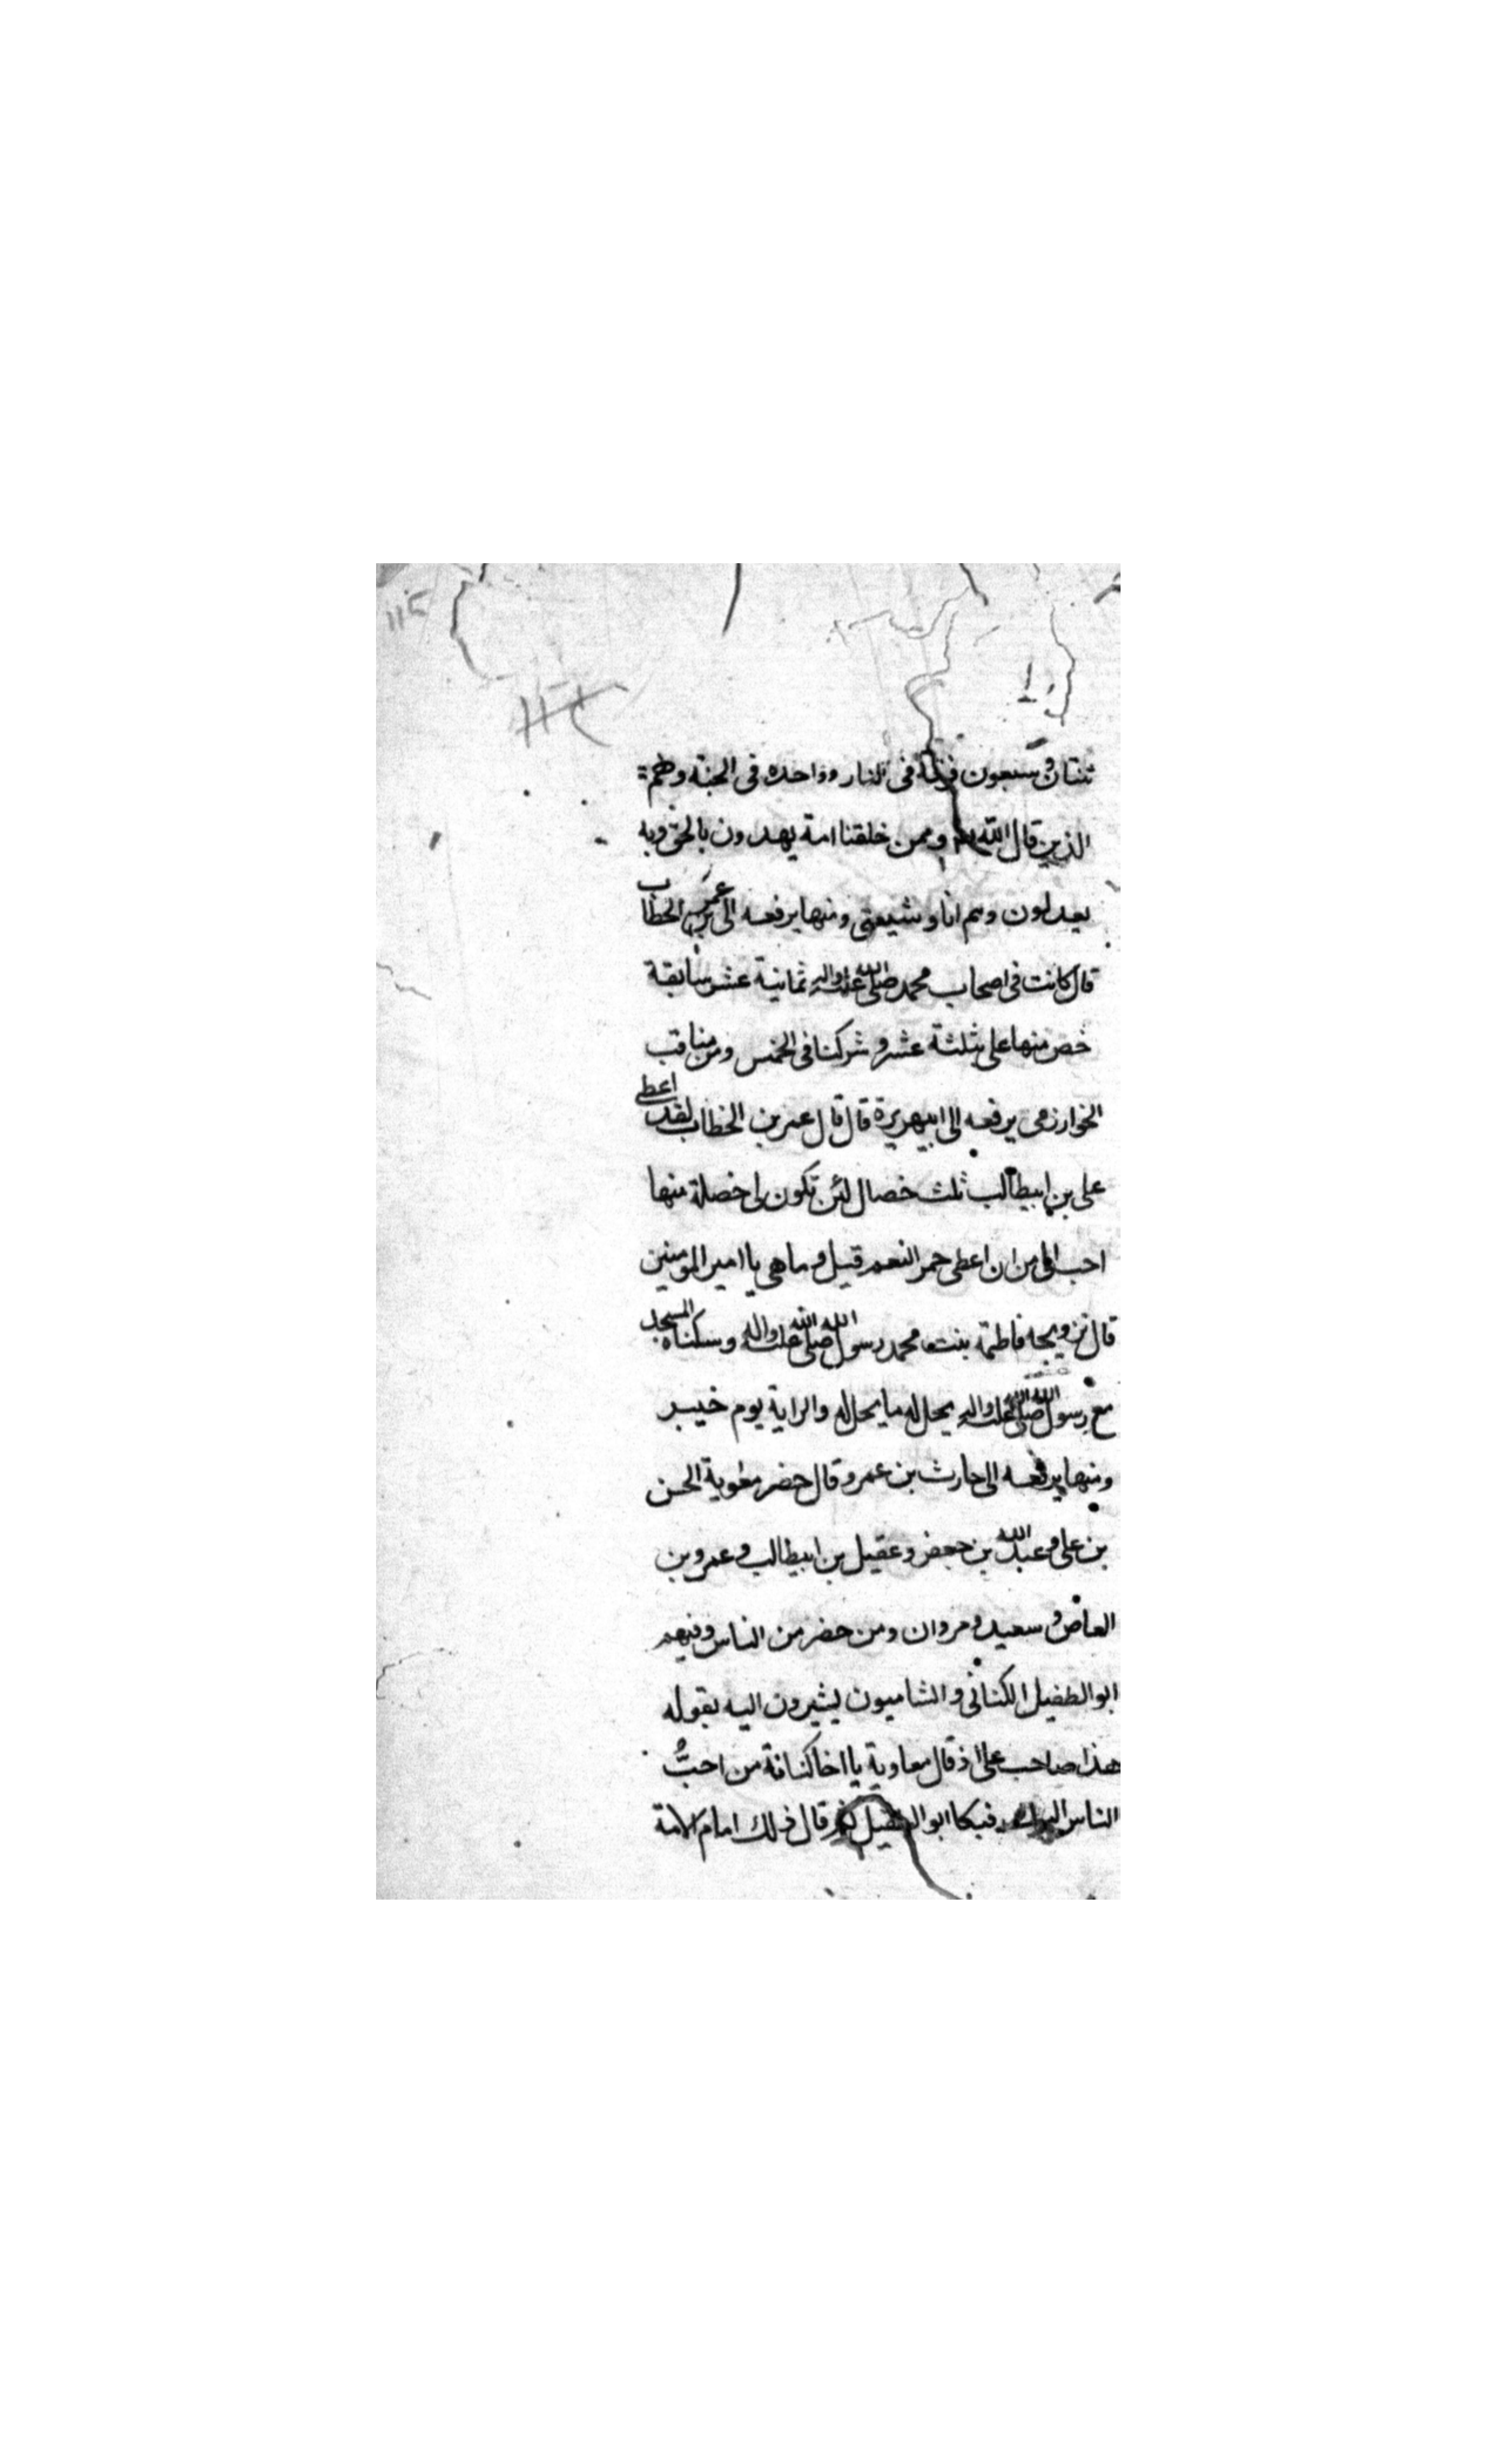 ثنتان وسبعون فرقة فى النار وواحده فى الجنة وهم
الذين قال الله وممن خلقنا امة يهدون بالحق وبه
يعدلون وهم انا وشيعتى ومنها يرفعه الى عمر بن الخطاب
قال كانت فى اصحاب محمد صلى الله عليه واله ثمانية عشر سابقة
خص منها على بثلثة عشر وشركنا فى الخمس ومن مناقب
الخوارزمى يرفعه الى ابيهريرة قال قال عمر بن الخطاب لقد اعطى
على بن ابيطالب ثلث خصال لئن تكون لى خصلة منها
احب الى من ان اعطى حمر النعم قيل وما هى يا امير المومنين
قال تزويجه فاطمة بنت محمد رسول الله صلى الله عليه واله وسكناه المسجد
مع رسول الله صلى الله عليه واله يحل له ما يحل له والراية يوم خيبر
ومنها يرفعه الى حارث بن عمرو قال حضر معوية الحسن
بن على وعبد الله بن جعفر وعقيل بن ابيطالب وعمرو بن
العاص وسعيد ومروان ومن حضر من الناس وفيهم
ابو الطفيل الكنانى والشاميون يشيرون اليه بقوله
هذا صاحب على اذ قال معاوية يا اخا كنانة من احبُّ
الناس اليك فبكا ابو الطفيل ثم قال ذلك امام الامة